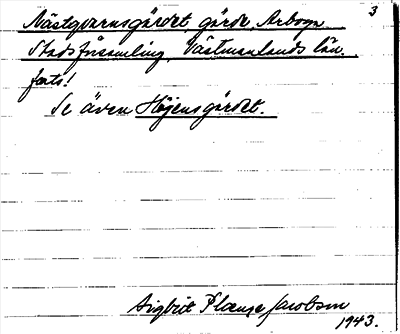 3
Nästqvarnsgärdet, gärde, Arboga
Stadsförsamling, Västmanlands län.
forts!
Se även Höjensgärdet.
Sigbrit Plænge Jacobson
1943.